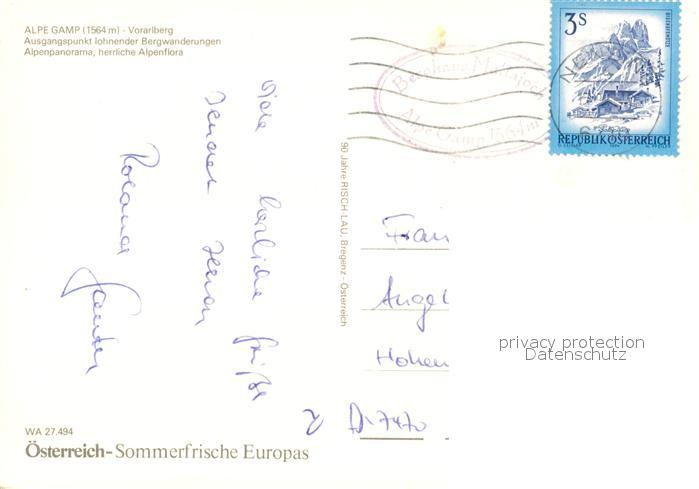 ALPE GAMP (1564 m) - Vorarlberg
Ausgangspunkt lohnender Bergwanderungen
Alpenpanorama, herrliche Alpenflora
Viele herzliche Grüße
Roland
90 Jahre RISCH-LAU, Bregenz - Österreich
WA 27.494
Österreich-Sommerfrische Europas
Alpe Gamp 1564m
3 S
REPUBLIK ÖSTERREICH
Frau
Angel
Hohen
D-7470
privacy protection
Datenschutz